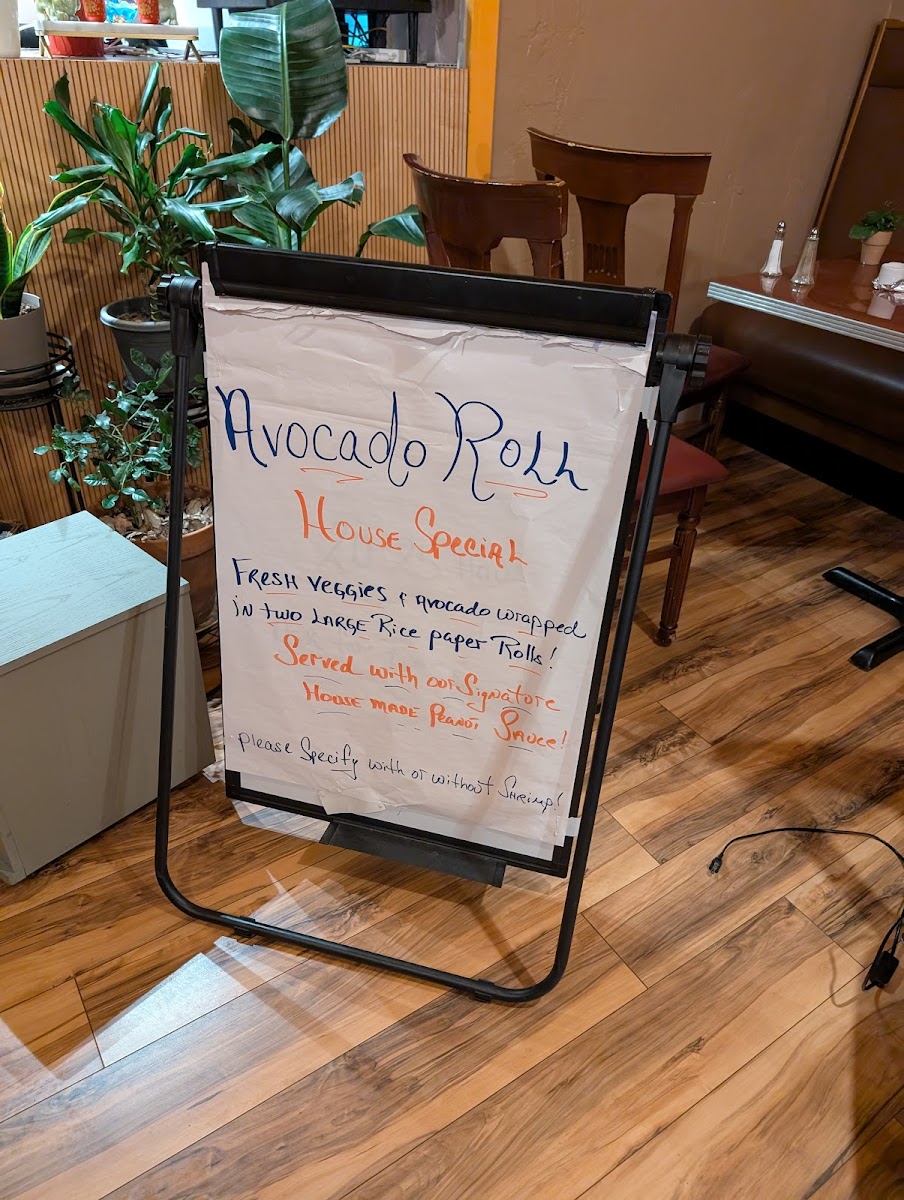 Avocado Roll
House Special
Fresh Veggies & Avocado wrapped
in two Large Rice paper Rolls!
Served with our Signature
House made Peanut Sauce!
Please Specify with or without Shrimp!